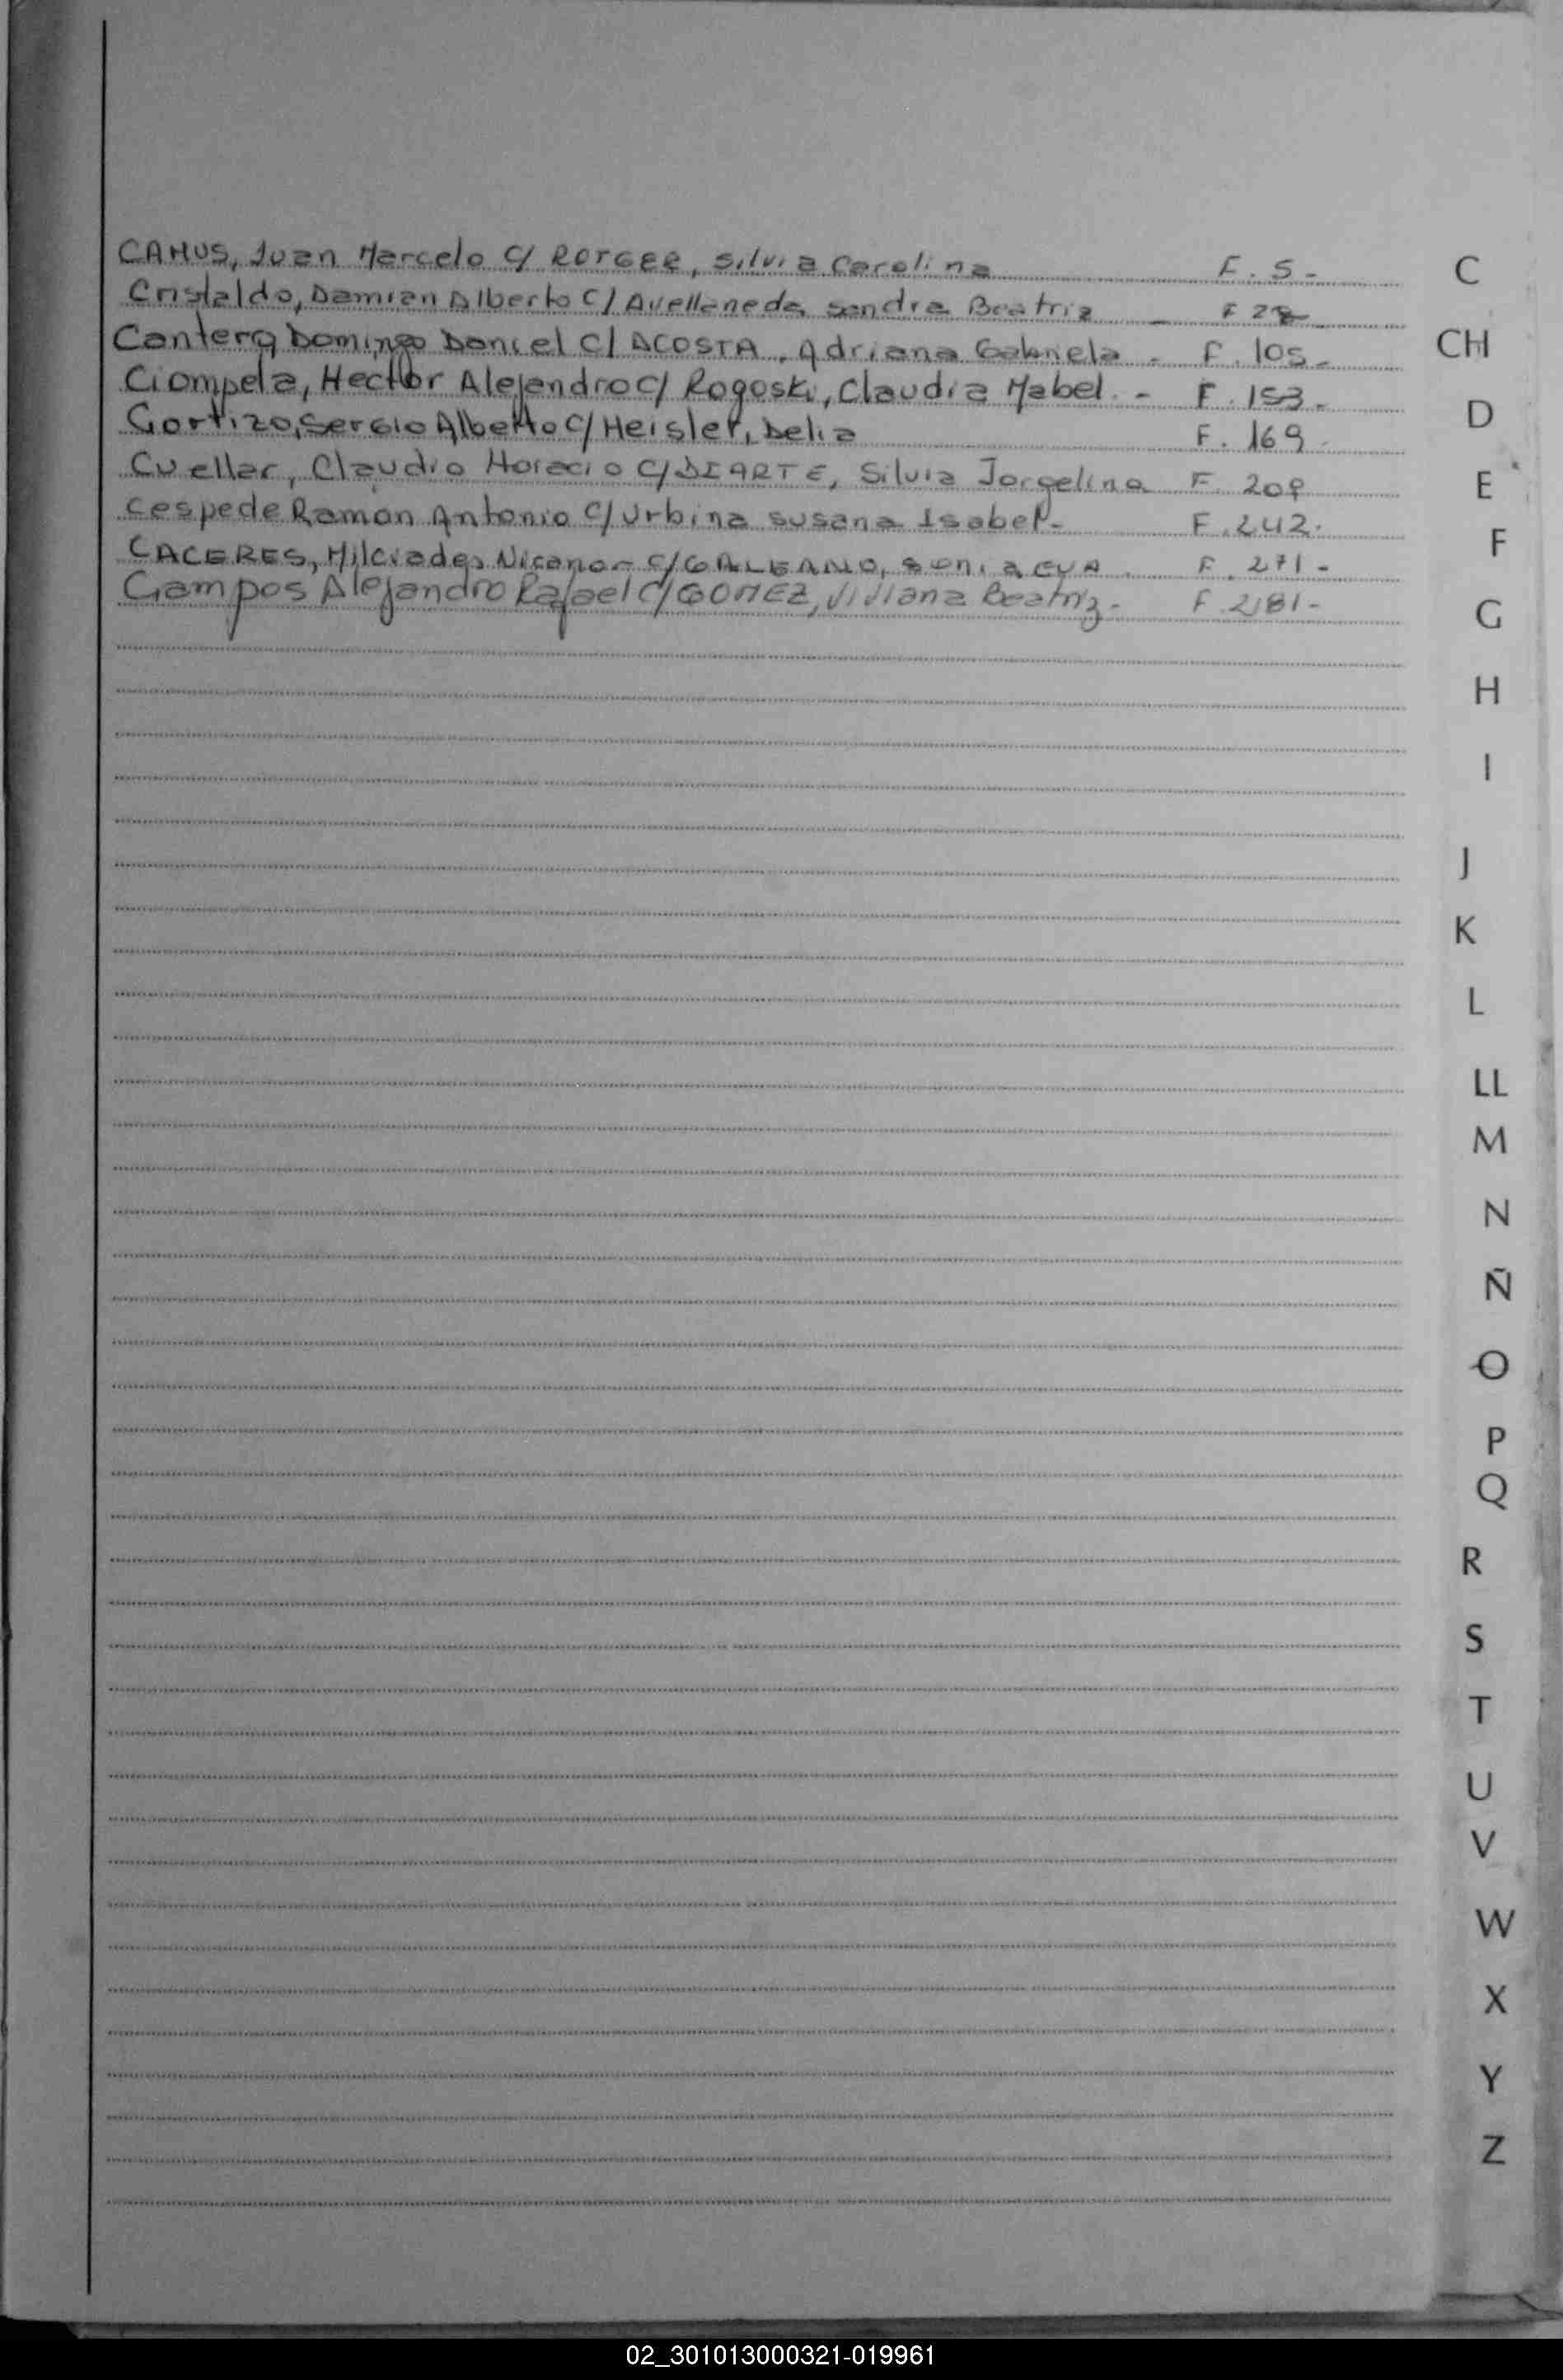 CAMUS, Juan Marcelo C/ ROTGER, Silvia Carolina F. 5.-
Cristaldo, Damian Alberto C/ Avellaneda Sandra Beatriz - F
Cantero Domingo Daniel C/ ACOSTA, Adriana Gabriela - F. 105.-
Ciompela, Hector Alejandro C/ Rogoski, Claudia Mabel. - F. 153.-
Cortizo, Sergio Alberto C/ Heisler, Delia F. 169.-
Cuellar, Claudio Horacio C/ DIARTE, Silvia Jorgelina F. 209
Cespede Ramon Antonio C/ Urbina Susana Isabel.- F. 242.
CACERES, Milciades Nicanor C/ GALEANO, Sonia EVA. F. 271-
Campos Alejandro Rafael C/ GOMEZ, Viviana Beatriz.- F. 281-
C
CH
D
E
F
G
H
I
J
K
L
LL
M
N
Ñ
O
P
Q
R
S
T
U
V
W
X
Y
Z
02_301013000321-019961